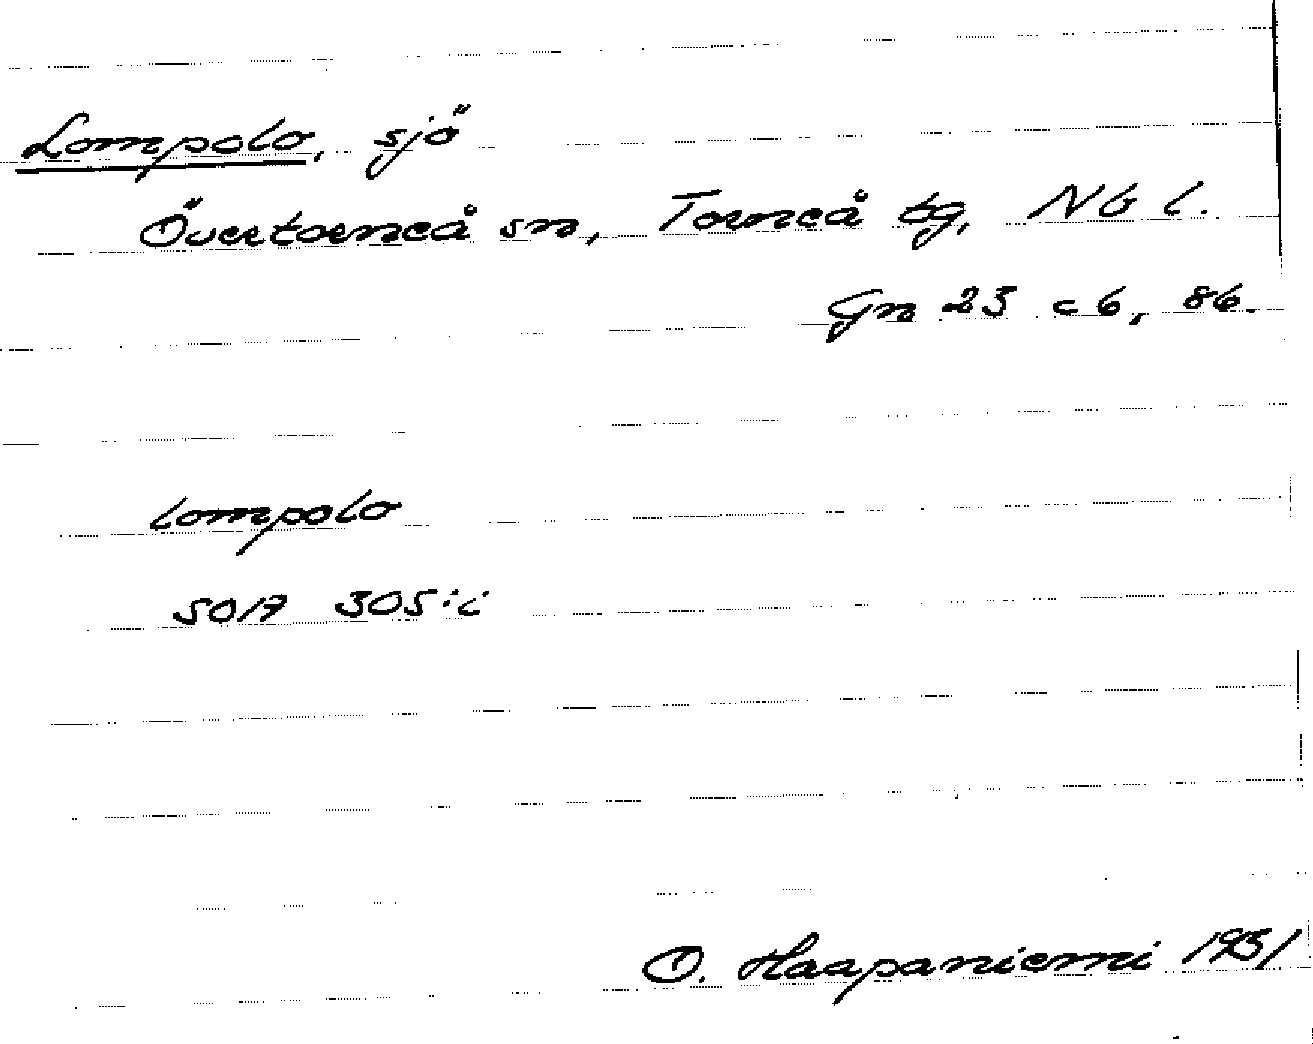 Lompolo, sjö
Övertorneå sn, Torneå tg, Nb l.
Gn 23 c 6, 86.
lompolo
SOA 305:i
O. Haapaniemi 1931